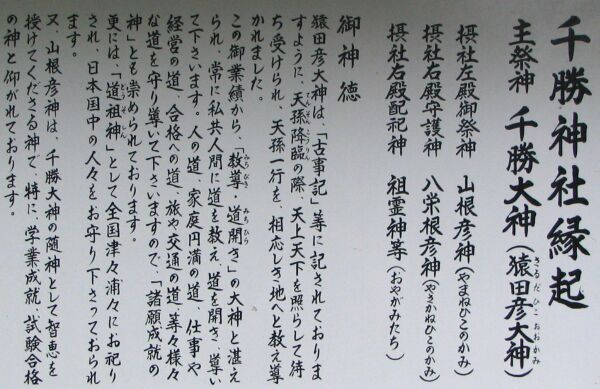 千勝神社縁起
主祭神　千勝大神（猿田彦大神）
さるだひこおおかみ
摂社左殿御祭神　山根彦神（やまねひこのかみ）
摂社右殿守護神　八栄根彦神（やさかねひこのかみ）
摂社右殿配祀神　祖霊神等（おやがみたち）
御神徳
猿田彦大神は、「古事記」等に記されておりま
すように、天孫降臨の際、天上天下を照らして待
ち受けられ、天孫一行を、相応しき地へと教え導
かれました。
この御業績から、「教導・道開き」の大神と湛え
みちびき　みちひら
られ、常に私共人間に道を教え、道を開き、導い
て下さいます。人の道、家庭円満の道、仕事や
経営の道、合格への道、旅や交通の道、等々様々
な道を守り導いて下さいますので、「諸願成就の
神」とも崇められております。
更には、「道祖神」として全国津々浦々にお祀り
どうそじん
され、日本国中の人々をお守り下さっておられ
ます。
又、山根彦神は、千勝大神の随神として智恵を
授けてくださる神で、特に、学業成就、試験合格
の神と仰がれております。